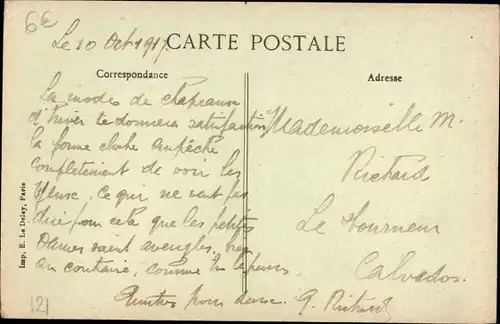 6€
Le 10 Oct 1917
CARTE POSTALE
Correspondance
Adresse
La modes de chapeaux
d'hiver te donnera satisfaction
la forme cloche empêche
complètement de voir les
yeux, ce qui ne veut pas
dire pour cela que les petites
Dames soient aveugles, bien
au contraire, comme tu
dans. G. Richard
Mademoiselle M.
Richard
Le Tourneur
Calvados.
Imp. E. Le Deley, Paris
121